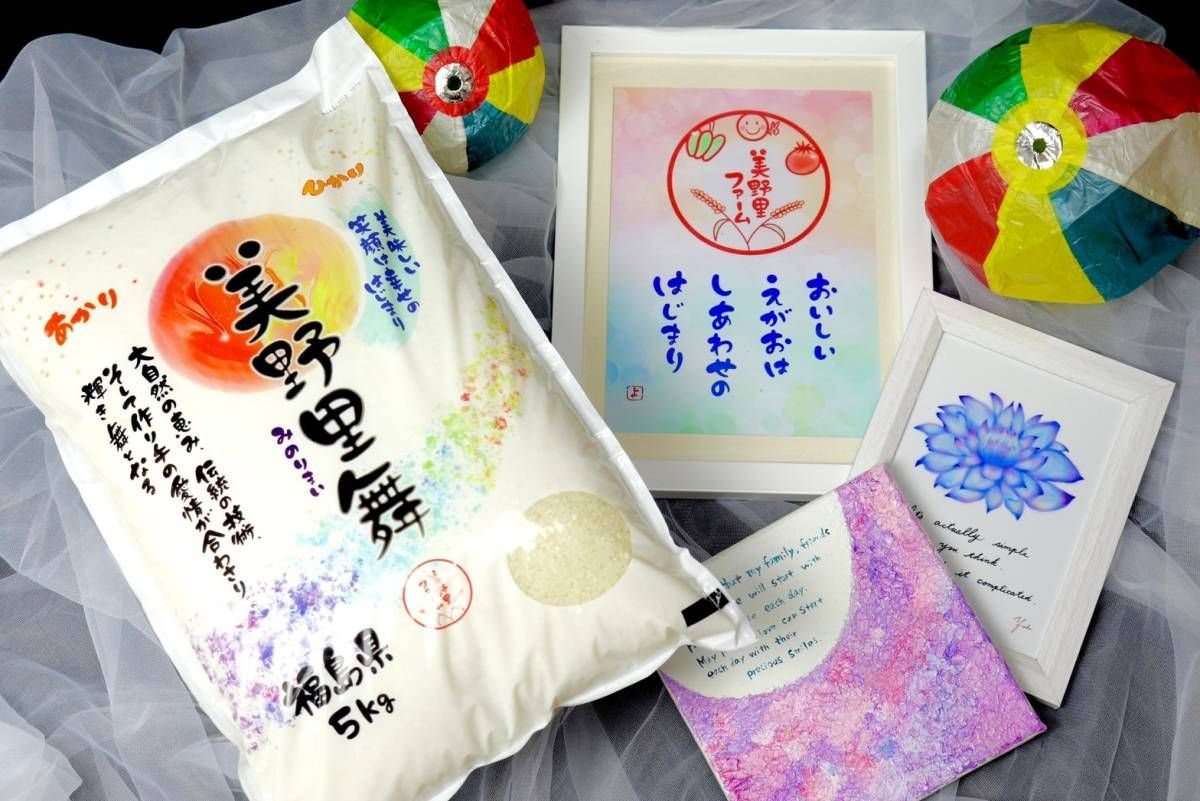 ひかり
美味しい
笑顔は幸せの
はじまり
あかり
美野里舞
みのりまい
大自然の恵み、伝統の技術、
そして作り手の愛情が合わさり
輝き舞となる
福島県
5kg
美野里
ファーム
おいしい
えがおは
しあわせの
はじまり
よ
that my family, friends
will start with
each day.
May
love can start
each day with their
precious smiles.
actually simple
think.
it complicated.